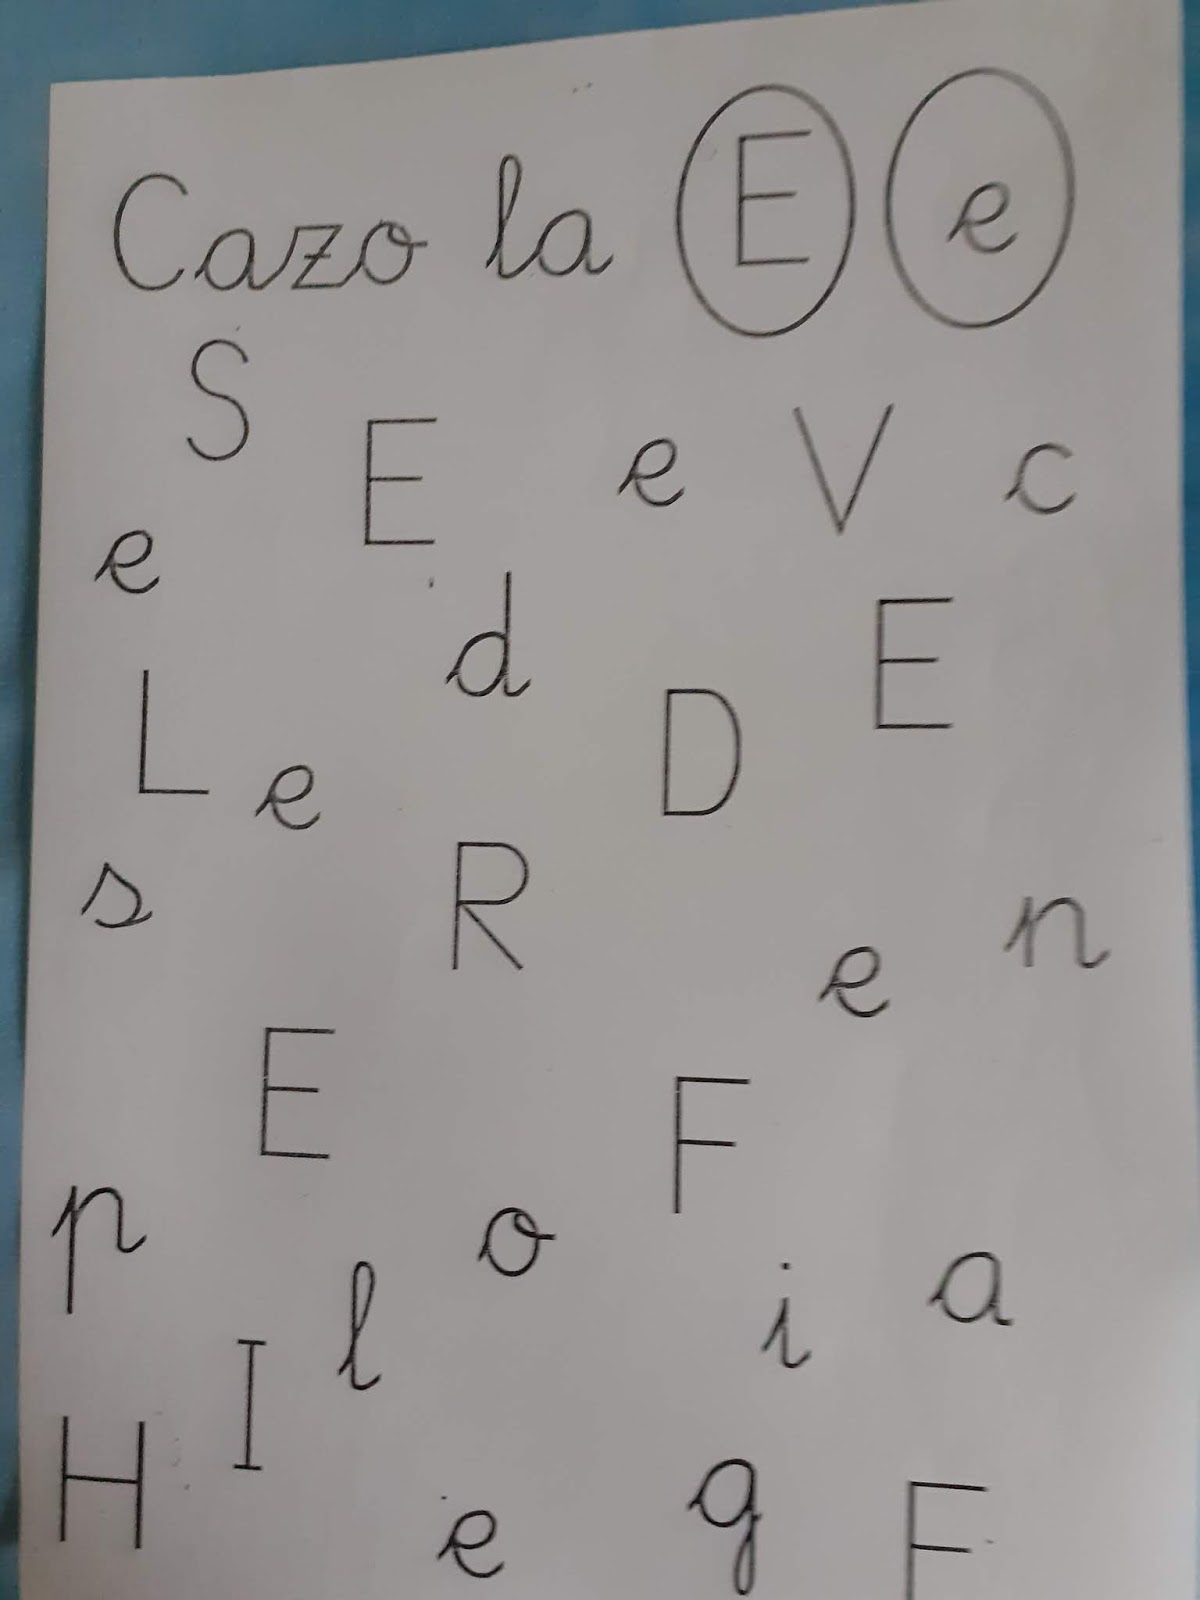 Cazo la E e
S E e V c
e d E
L e D
s R e n
E F
p o
l i a
I
H e g